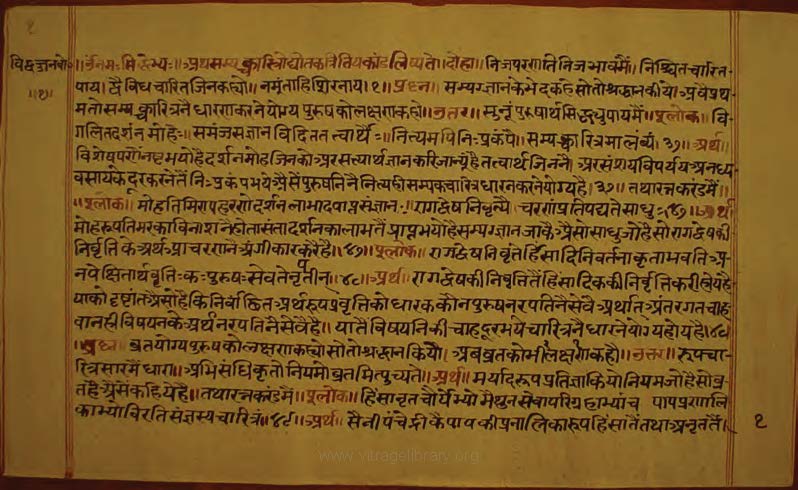 १
विद्वज्जनबो॰
॥१॥
॥ उंनमः सिद्धेभ्यः॥ अथसम्यक्चारित्रोद्योतकत्रितियकांडलिष्यते॥ दोहा॥ निजपरणतिनिजभावमैं॥ निश्चितचारित
पाय॥ द्वैविधचारितजिनकह्यो॥ नमूंताहिशिरनाय॥१॥ प्रश्न॥ सम्यग्ज्ञानकेभेदकहेसोतोश्रद्धानकीया॥ अबप्रथ
मतोसम्यक्चारित्रनैधारणाकरनेयोग्यपुरुषकोलक्षणकहो॥ उत्तर॥ सूनूंपुरुषार्थसिद्ध्युपायमैं॥ श्लोक॥ वि
गलितदर्शनमोहैः॥ समंजसज्ञानविदिततत्वार्थैः॥ नित्यमपिनिःप्रकंपैः॥ सम्यक्चारित्रमालंब्यं॥३७॥ अर्थ॥
विशेषपणौंनष्टभयोहैदर्शनमोहजिनको अरसत्यार्थज्ञानकरिजान्यूहैतत्वार्थजिननै॥ अरसंशयविपर्ययअनध्य
वसायकेदूरकरनेतैंनिःप्रकंपभयेअैसेंपुरुषनिनैनित्यहीसम्यक्चारित्रधारनकरनेयोग्यहै॥३७॥ तथारत्नकरंडमैं॥
॥श्लोक॥ मोहतिमिरापहरणेदर्शनलाभादवाप्तसंज्ञानः॥ रागद्वेषनिवृत्यै॥ चरणंप्रतिपद्यतेसाधुः॥४७॥ अर्थ॥
मोहरुपतिमरकाविनाशनैहोतासंतादर्शनकालाभतैंप्राप्तभयोहैसम्यग्ज्ञानजाकै अैसोसाधुजोहैसोरागद्वेषकी
निर्वृतिकेअर्थआचरणनैअंगीकारकरैहै॥४७॥ श्लोक॥ रागद्वेषनिवृतेर्हिंसादिनिवर्तनाकृताभवति॥ अ
नपेक्षितार्थवृतिःकःपुरुषःसेवतेनृपतीन्॥४८॥ अर्थ॥ रागद्वेषकीनिवृत्तितैंहिंसादिककीनिर्वृत्तिकरीहोयहै
याकोदृष्टांतअैसोहैकिनिर्वांछितअर्थरुपप्रवृत्तिकोधारककौनपुरुषनरपतिनैसेवै अर्थात्अंतरगतचाह
वानहीविषयनकेअर्थनरपतिनैसेवैहै॥ यातैंविषयनिकीचाहदूरभयेचारित्रनैधारनेयोग्यहोयहै॥४८
॥प्रश्न॥ व्रतयोग्यपुरुषकोलक्षणकह्योसोतोश्रद्धानकियो॥ अबव्रतकोभीलक्षणकहौ॥ उत्तर॥ रुपचा
रित्रसारमैंधारा॥ अभिसंधिकृतोनियमोव्रतमित्पुच्यते॥ अर्थ॥ मर्यादरूपप्रतिज्ञाकियोनियमजोहैसोव्र
तहैअैसेंकहियेहै॥ तथारत्नकरंडमैं॥ श्लोक॥ हिंसानृतचौर्येभ्योमैथुनसेवापरिग्रहाभ्यांच पापप्रणालि
काभ्योविरतिःसंज्ञस्यचारित्रं॥४९॥ अर्थ॥ सैनीपंचेंद्रीकैपापकीप्रनालिकारुपहिंसातैंतथाअनृततैं।
१
www.vitragelibrary.org